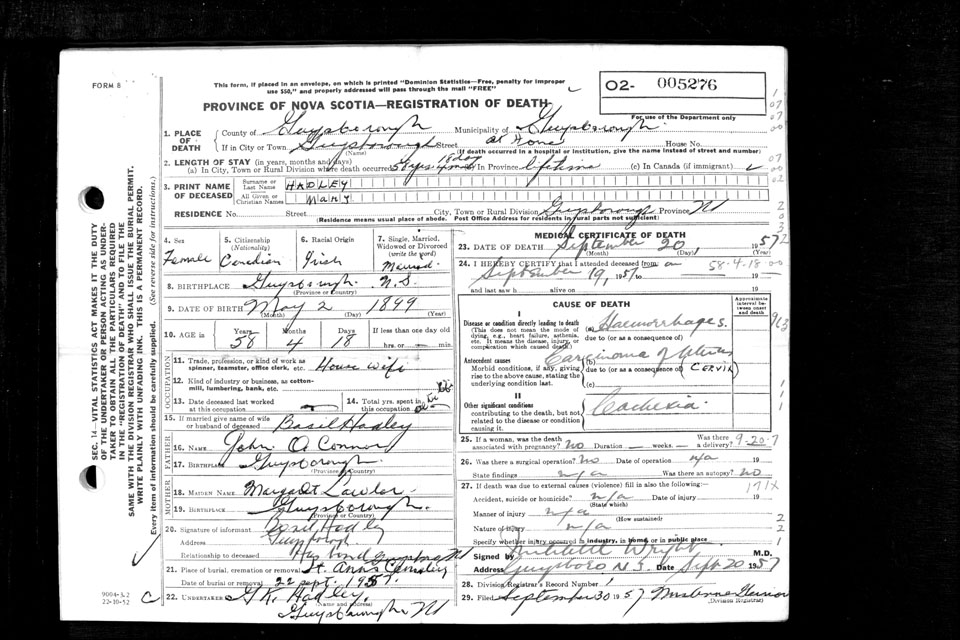 FORM 8
This form, if placed in an envelope, on which is printed "Dominion Statistics—Free, penalty for improper
use $50," and properly addressed will pass through the mail "FREE"
PROVINCE OF NOVA SCOTIA—REGISTRATION OF DEATH
02- 005276
For use of the Department only
1. PLACE OF DEATH
County of Guysborough Municipality of Guysborough
If in City or Town Guysborough Street at Home House No.
(Name) (If death occurred in a hospital or institution, give the name instead of street and number)
2. LENGTH OF STAY (in years, months and days)
(a) In City, Town or Rural Division where death occurred 58 yrs 4 mos 18 day In Province lifetime (c) In Canada (if immigrant)
3. PRINT NAME OF DECEASED
Surname or Last Name HADLEY
All Given or Christian Names MARY
RESIDENCE No. Street City, Town or Rural Division Guysborough Province NS
(Residence means usual place of abode. Post Office Address for residents in rural parts not sufficient)
4. Sex Female
5. Citizenship (Nationality) Canadian
6. Racial Origin Irish
7. Single, Married, Widowed or Divorced (write the word) Married
8. BIRTHPLACE Guysborough. N.S.
(Province or Country)
9. DATE OF BIRTH May 2 1899
(Month) (Day) (Year)
10. AGE Years 58 Months 4 Days 18 If less than one day hrs. or min.
OCCUPATION
11. Trade, profession, or kind of work as spinner, teamster, office clerk, etc. House wife
12. Kind of industry or business, as cotton-mill, lumbering, bank, etc.
13. Date deceased last worked at this occupation
14. Total yrs. spent in this occupation
15. If married give name of wife or husband of deceased Basil Hadley
FATHER
16. NAME John O Connor
17. BIRTHPLACE Guysborough.
(Province or Country)
MOTHER
18. MAIDEN NAME Margaret Lawlor
19. BIRTHPLACE Guysborough.
(Province or Country)
20. Signature of informant Basil Hadley
Address Guysborough
Relationship to deceased Husband Guysboro NS
21. Place of burial, cremation or removal St. Ann's Cemetery
Date of burial or removal 22 Sept. 1957.
22. UNDERTAKER G.K. Hadley.
(Name and address)
Guysborough NS
MEDICAL CERTIFICATE OF DEATH
23. DATE OF DEATH September 20, 1957
(Month) (Day) (Year)
24. I HEREBY CERTIFY that I attended deceased from on 58-4-18
September 19, 1957 to 19
and last saw h alive on 19
CAUSE OF DEATH
Approximate interval between onset and death
I
Disease or condition directly leading to death (a) Haemorrhages.
(This does not mean the mode of dying, e.g., heart failure, asthenia, etc. It means the disease, injury, or complication which caused death.)
due to (or as a consequence of)
Antecedent causes (b) Carcinoma of Uterus
Morbid conditions, if any, giving rise to the above cause, stating the underlying condition last.
due to (or as a consequence of) CERVIX
(c)
II
Other significant conditions Cachexia.
contributing to the death, but not related to the disease or condition causing it.
25. If a woman, was the death associated with pregnancy? No Duration — weeks. — Was there a delivery? 9-20-7
26. Was there a surgical operation? No Date of operation n/a 19
State findings n/a Was there an autopsy? no
27. If death was due to external causes (violence) fill in also the following:- 171X
Accident, suicide or homicide? n/a Date of injury 19
(State which)
Manner of injury n/a
(How sustained)
Nature of injury n/a
Specify whether injury occurred in industry, in home, or in public place
Signed by Wright M.D.
Address Guysboro N.S. Date Sept 20 1957
28. Division Registrar's Record Number
29. Filed September 30 1957
(Division Registrar)
SEC. 14—VITAL STATISTICS ACT MAKES IT THE DUTY
OF THE UNDERTAKER OR PERSON ACTING AS UNDERTAKER
TO OBTAIN ALL THE PARTICULARS REQUIRED
IN THE "REGISTRATION OF DEATH" AND TO FILE THE
SAME WITH THE DIVISION REGISTRAR WHO SHALL ISSUE THE BURIAL PERMIT.
WRITE PLAINLY WITH UNFADING INK—THIS IS A PERMANENT RECORD.
Every item of information should be carefully supplied. (See reverse side for instructions.)
22-10-52